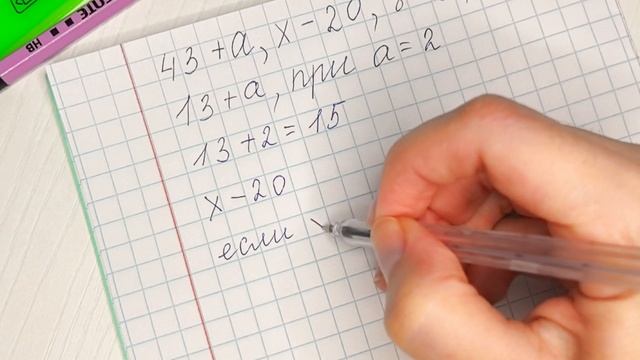 43 + a, x − 20,
13 + a, при a = 2
13 + 2 = 15
x − 20
если
HB